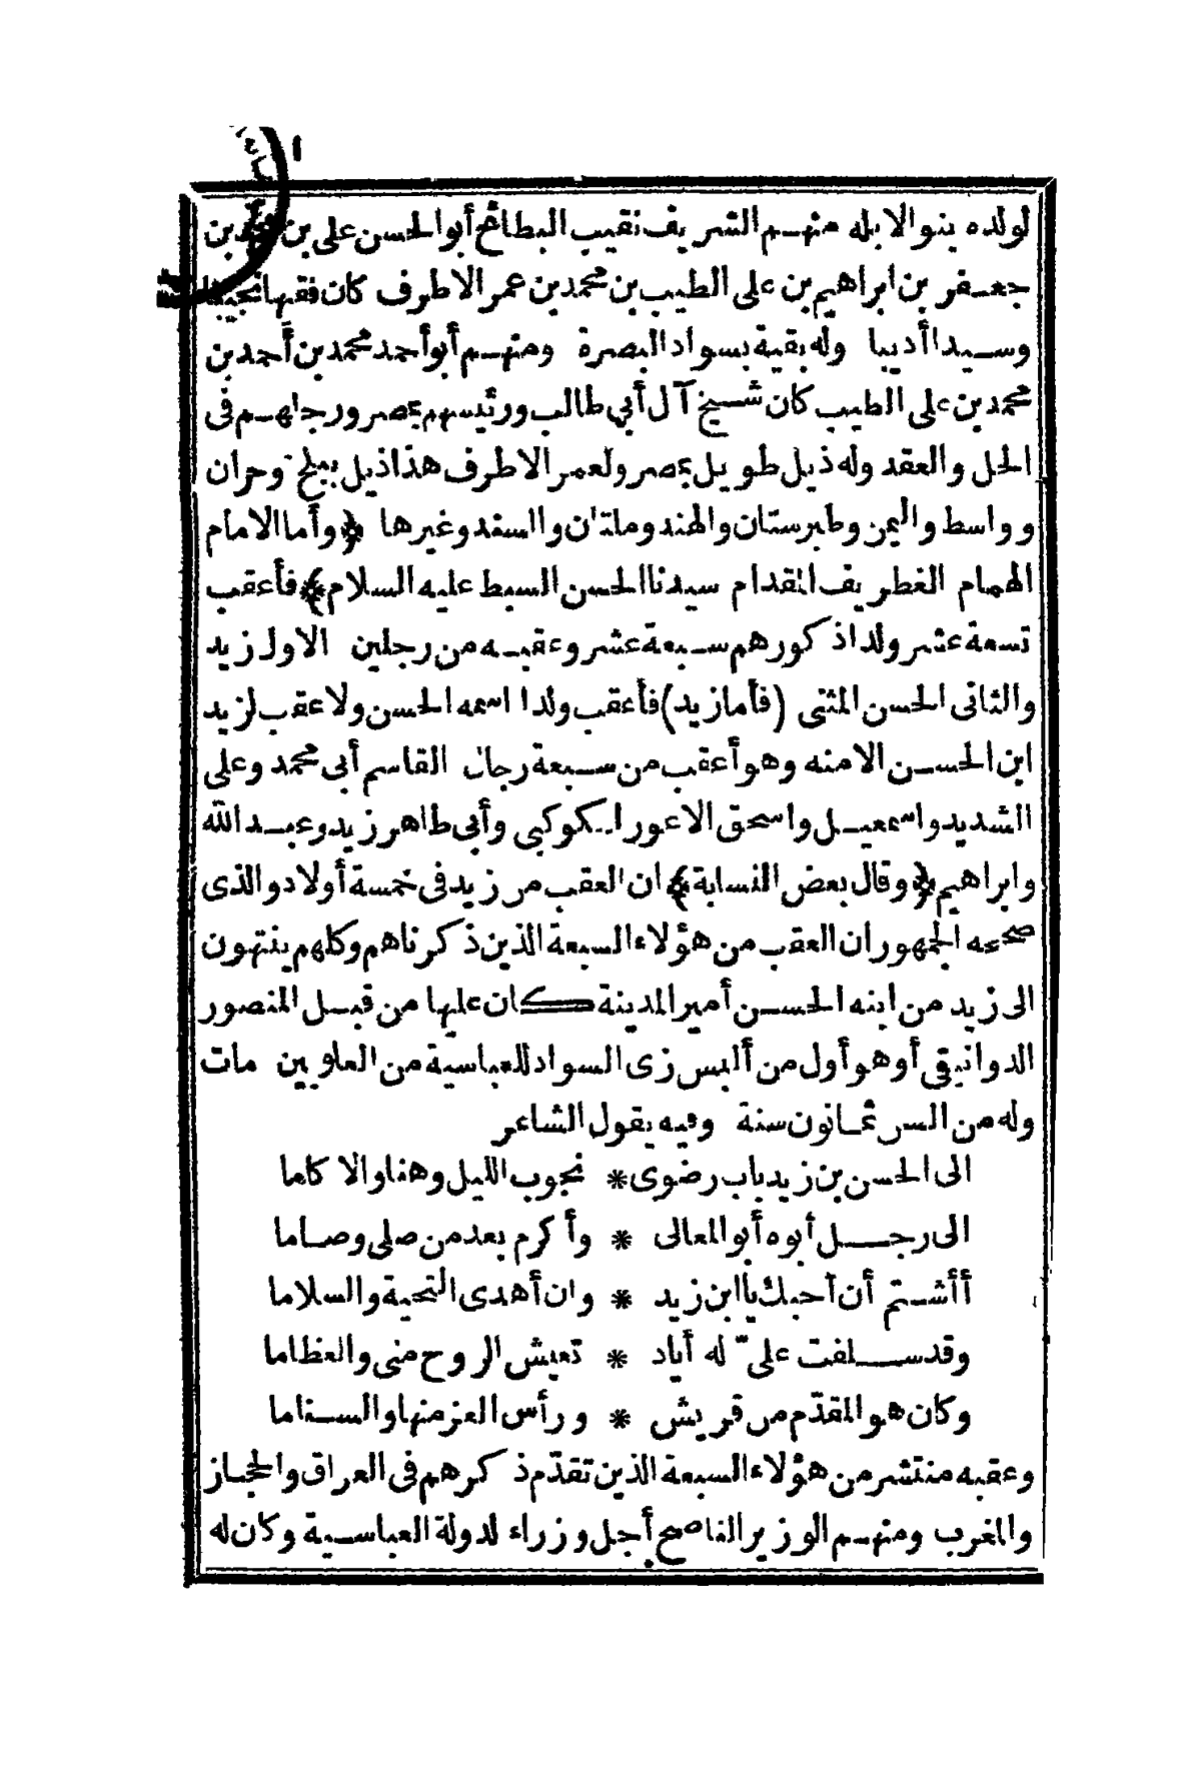 لولده بنو الابله منهم الشريف نقيب البطائح أبو الحسن على بن محمد بن
جعفر بن ابراهيم بن على الطيب بن محمد بن عمر الاطرف كان فقيها نجيبا
وسيدا أديبا وله بقية بسواد البصرة ومنهم أبو أحمد محمد بن أحمد بن
محمد بن على الطيب كان شيخ آل أبي طالب ورئيسهم بمصر ورجلهم فى
الحل والعقد وله ذيل طويل بمصر ولعمر الاطرف هذا ذيل ببلخ وحران
وواسط واليمن وطبرستان والهند وملتان والسند وغيرها ﴿وأما الامام
الهمام الغطريف المقدام سيدنا الحسن السبط عليه السلام﴾ فأعقب
تسعة عشر ولدا ذكورهم سبعة عشر وعقبه من رجلين الاول زيد
والثانى الحسن المثنى (فأما زيد) فأعقب ولدا اسمه الحسن ولا عقب لزيد
ابن الحسن الا منه وهو أعقب من سبعة رجال القاسم أبى محمد وعلى
الشديد واسمعيل واسحق الاعور الكوكبى وأبى طاهر زيد وعبد الله
وابراهيم ﴿وقال بعض النسابة﴾ ان العقب من زيد فى خمسة أولاد والذى
صححه الجمهور ان العقب من هؤلاء السبعة الذين ذكرناهم وكلهم ينتهون
الى زيد من ابنه الحسن أمير المدينة كان عليها من قبل المنصور
الدوانيقى أو هو أول من ألبس زى السواد للعباسية من العلويين مات
وله من السن ثمانون سنة وفيه يقول الشاعر
الى الحسن بن زيد باب رضوى * نجوب الليل وهنا والا كاما
الى رجل أبوه أبو المعالى * وأكرم بعد من صلى وصاما
أأشتم أن أحبك يا ابن زيد * وان أهدى التحية والسلاما
وقد سلفت علىّ له أياد * تعيش الروح منى والعظاما
وكان هو المقدّم من قريش * ورأس العز منها والسناما
وعقبه منتشر من هؤلاء السبعة الذين تقدّم ذكرهم فى العراق والحجاز
والمغرب ومنهم الوزير الناصح أجل وزراء لدولة العباسية وكان له